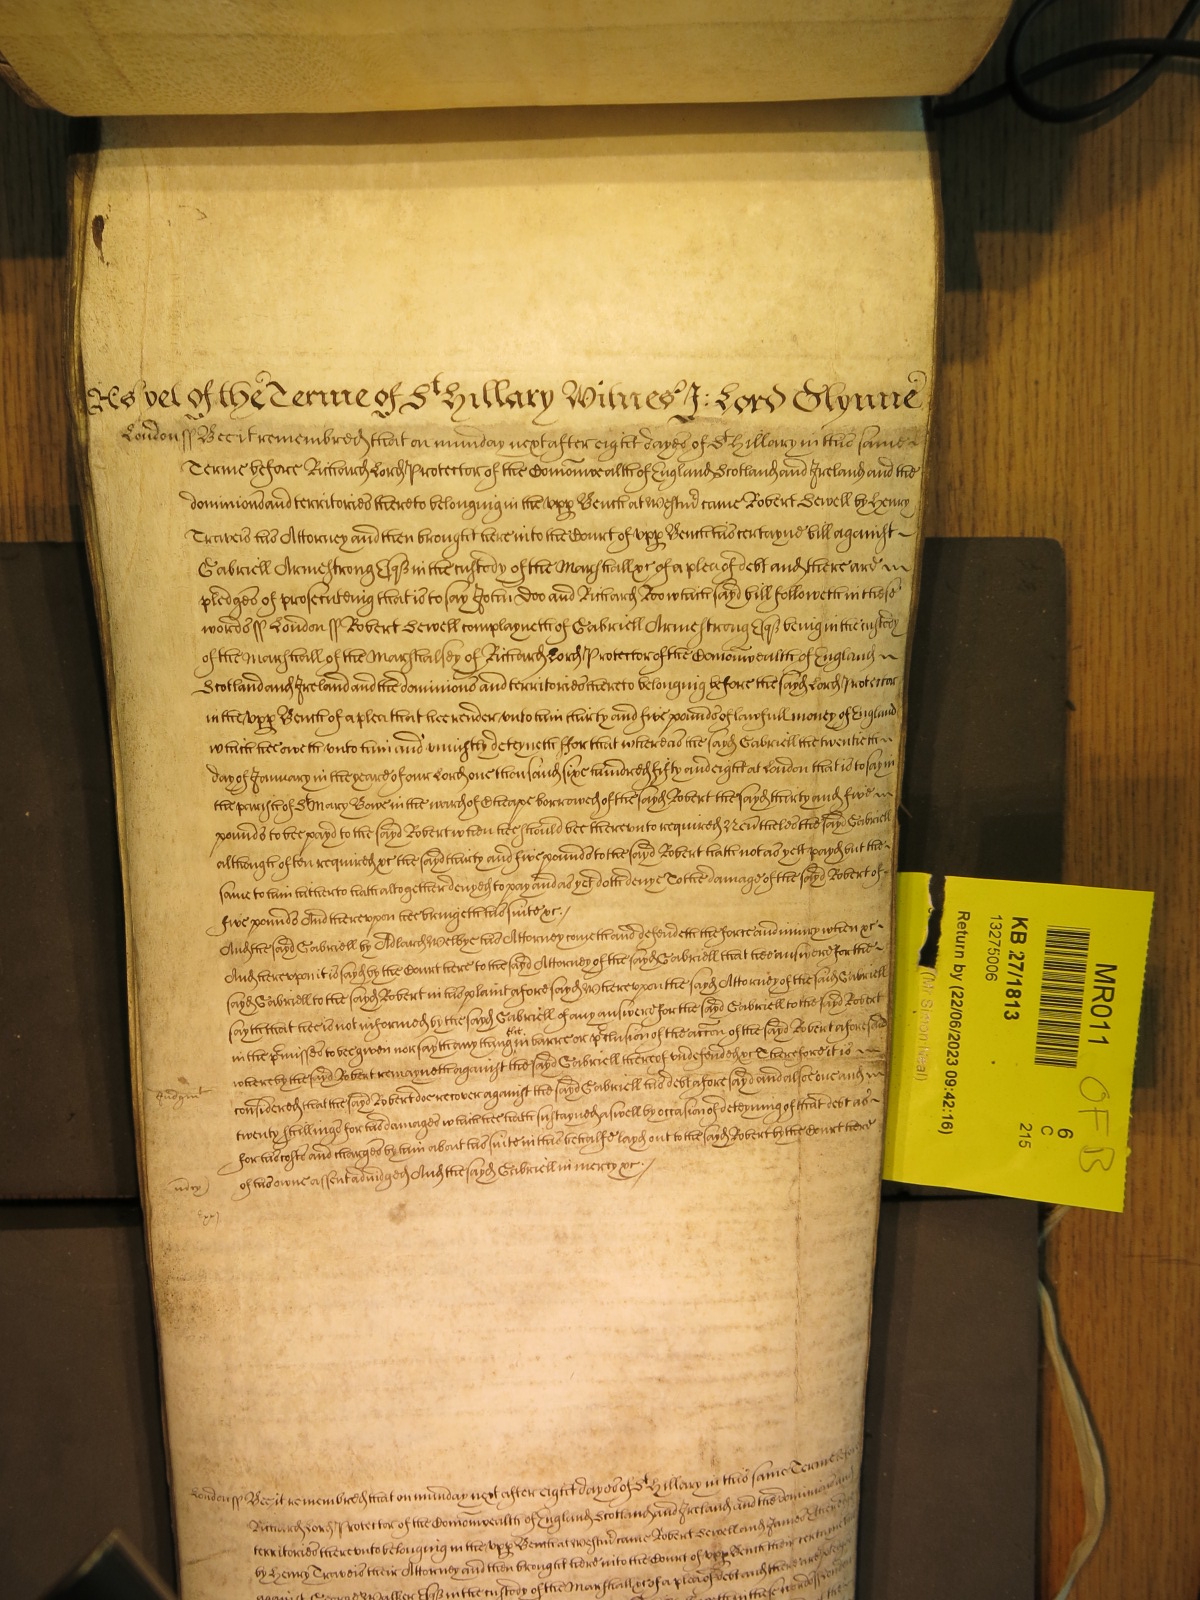 As yet of the Terme of St Hillary Witnes J: Lord Glynne
London ss Bee it remembred that on munday next after eight dayes of St Hillary in this same
Terme before Richard Lord Protector of the Comonwealth of England Scotland and Ireland and the
dominions and territories thereto belonging in the upp Bench at Westmr came Robert Sewell by Henry
Travers his Attorney and then brought here into the Court of upp Bench his certayne bill against
Gabriell Armestrong Esqr in the custody of the Marshall &c of a plea of debt and there are
pledges of prosecuteing that is to say John Doo and Richard Roo which sayd bill followeth in these
words ss London ss Robert Sewell complayneth of Gabriell Armestrong Esqr being in the custody
of the Marshall of the Marshalsey of Richard Lord Protector of the Comonwealth of England
Scotland and Ireland and the dominions and territories thereto belonging before the sayd Lord Protector
in the upp Bench of a plea that hee render unto him thirty and five pounds of lawfull money of England
which hee oweth unto him and uniustly deteyneth ffor that whereas the sayd Gabriell the twentieth
day of January in the yeare of our Lord one thousand six hundred fifty and eight at London that is to say in
the parish of St Mary Bowe in the ward of Cheape borrowed of the sayd Robert the sayd thirty and five
pounds to bee payd to the sayd Robert when hee should bee thereunto required Neverthelesse the sayd Gabriell
although often required &c the sayd thirty and five pounds to the sayd Robert hath not as yett payd but the
same to him hitherto hath altogether denyed to pay and as yet doth denye To the damage of the sayd Robert of
five pounds And thereupon hee bringeth his suite &c./
And the sayd Gabriell by Adlard Welbye his Attorney cometh and defendeth the force and iniury when &c
And thereupon it is sayd by the Court here to the sayd Attorney of the sayd Gabriell that hee answere for the
sayd Gabriell to the sayd Robert in his plaint aforesayd Whereupon the sayd Attorney of the sayd Gabriell
sayth that hee is not informed by the sayd Gabriell of any answere for the sayd Gabriell to the sayd Robert
in the pmisses to bee given nor sayth any thing in barre or pclusion of the accon of the sayd Robert aforesaid
whereby the sayd Robert remayneth against the sayd Gabriell thereof undefended &c Therefore it is
Judgmt
considered that the sayd Robert doe recover against the sayd Gabriell his debt aforesayd and alsoe one and
twenty shillings for his damages which hee hath sustayned aswell by occasion of deteyning of that debt as
for his costs and charges by him about his suite in his behalfe layd out to the sayd Robert by the Court here
mercy
of his owne assent adiudged And the sayd Gabriell in mercy &c./
London ss Bee it remembred that on munday next after eight dayes of St Hillary in this same Terme before
Richard Lord Protector of the Comonwealth of England Scotland and Ireland and the dominions and
territories thereunto belonging in the upp Bench at Westmr came Robert Sewell and James
by Henry Travers their Attorney and then brought here into the Court of upp Bench their certaine
against Walker Esqr in the custody of the Marshall &c of a plea of debt and there are pledges
MR011
KB 27/1813
13275006
Return by (22/06/2023 09:42:16)
6
C
215
OFB